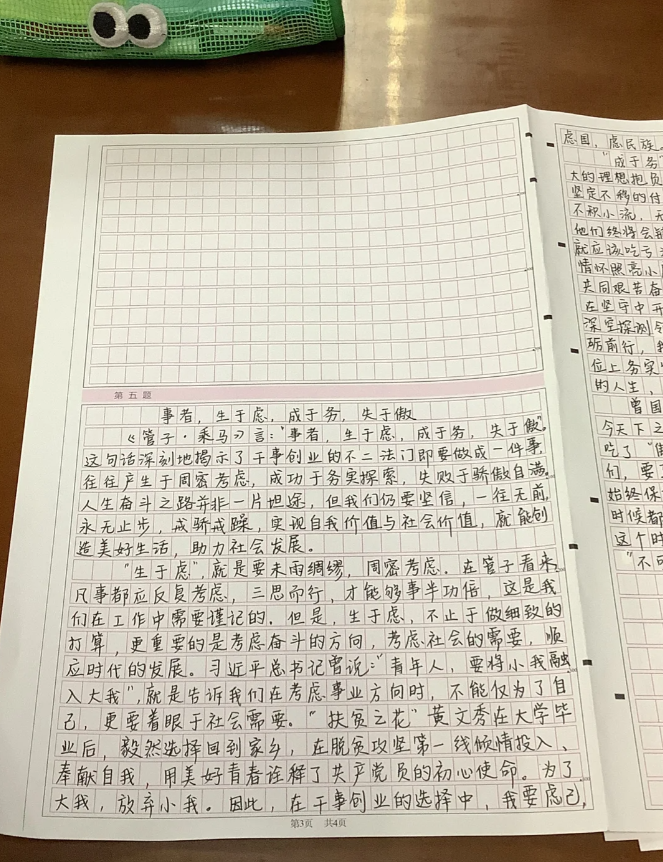 第五题
事者，生于虑，成于务，失于傲
《管子·乘马》言：“事者，生于虑，成于务，失于傲”。
这句话深刻地揭示了干事创业的不二法门即要做成一件事，
往往产生于周密考虑，成功于务实探索，失败于骄傲自满。
人生奋斗之路并非一片坦途，但我们仍要坚信，一往无前，
永无止步，戒骄戒躁，实现自我价值与社会价值，就能创
造美好生活，助力社会发展。
“生于虑”，就是要未雨绸缪，周密考虑。在管子看来，
凡事都应反复考虑，三思而行，才能够事半功倍，这是我
们在工作中需要谨记的。但是，生于虑，不止于做细致的
打算，更重要的是考虑奋斗的方向，考虑社会的需要，顺
应时代的发展。习近平总书记曾说：“青年人，要将小我融
入大我”，就是告诉我们在考虑事业方向时，不能仅为了自
己，更要着眼于社会需要。“扶贫之花”黄文秀在大学毕
业后，毅然选择回到家乡，在脱贫攻坚第一线倾情投入、
奉献自我，用美好青春诠释了共产党员的初心使命。为了
大我，放弃小我。因此，在干事创业的选择中，我要虑己，
第3页 共4页
虑国，虑民族。
“成于务”
大的理想抱负
坚定不移的付
不积小流，无
他们终将会
就应该吃亏
情怀照亮小
共同艰苦奋
在坚守中开
深空探测令
砺前行，我
位上务实
的人生，
曾国
今天下之
吃了“傲
们，要
始终保
时候都
这个时
“不可